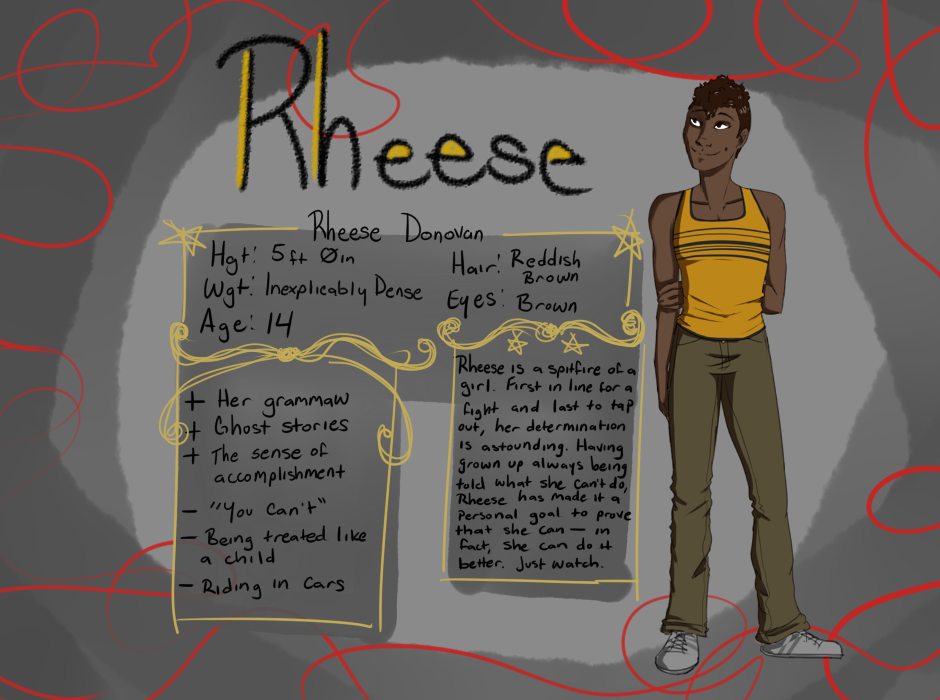 Rheese
Rheese Donovan
Hgt: 5ft 0in
Wgt: Inexplicably Dense
Age: 14
Hair: Reddish
Brown
Eyes: Brown
+ Her grammaw
+ Ghost stories
+ The sense of
accomplishment
- "You Can't"
- Being treated like
a child
- Riding in Cars
Rheese is a spitfire of a
girl. First in line for a
fight and last to tap
out, her determination
is astounding. Having
grown up always being
told what she can't do,
Rheese has made it a
Personal goal to prove
that she can — in
fact, she can do it
better. Just watch.